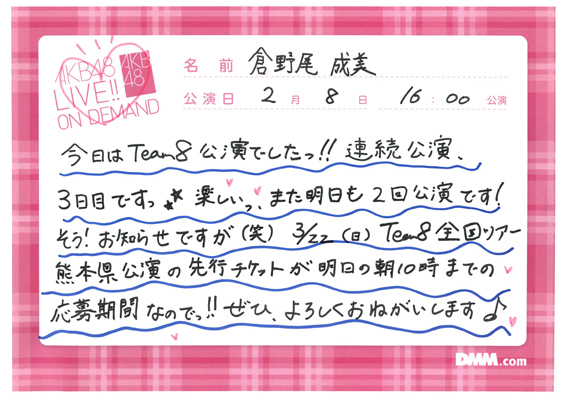 AKB48
LIVE!!
ON DEMAND
AKB
48
名前 倉野尾 成美
公演日 2月8日 16:00公演
今日はTeam8公演でしたっ!! 連続公演、
3日目ですっ 楽しいっ、また明日も2回公演です!
そう! お知らせですが(笑) 3/22(日) Team8全国ツアー
熊本県公演の先行チケットが明日の朝10時までの
応募期間なのでっ!! ぜひ、よろしくおねがいします♪
DMM.com